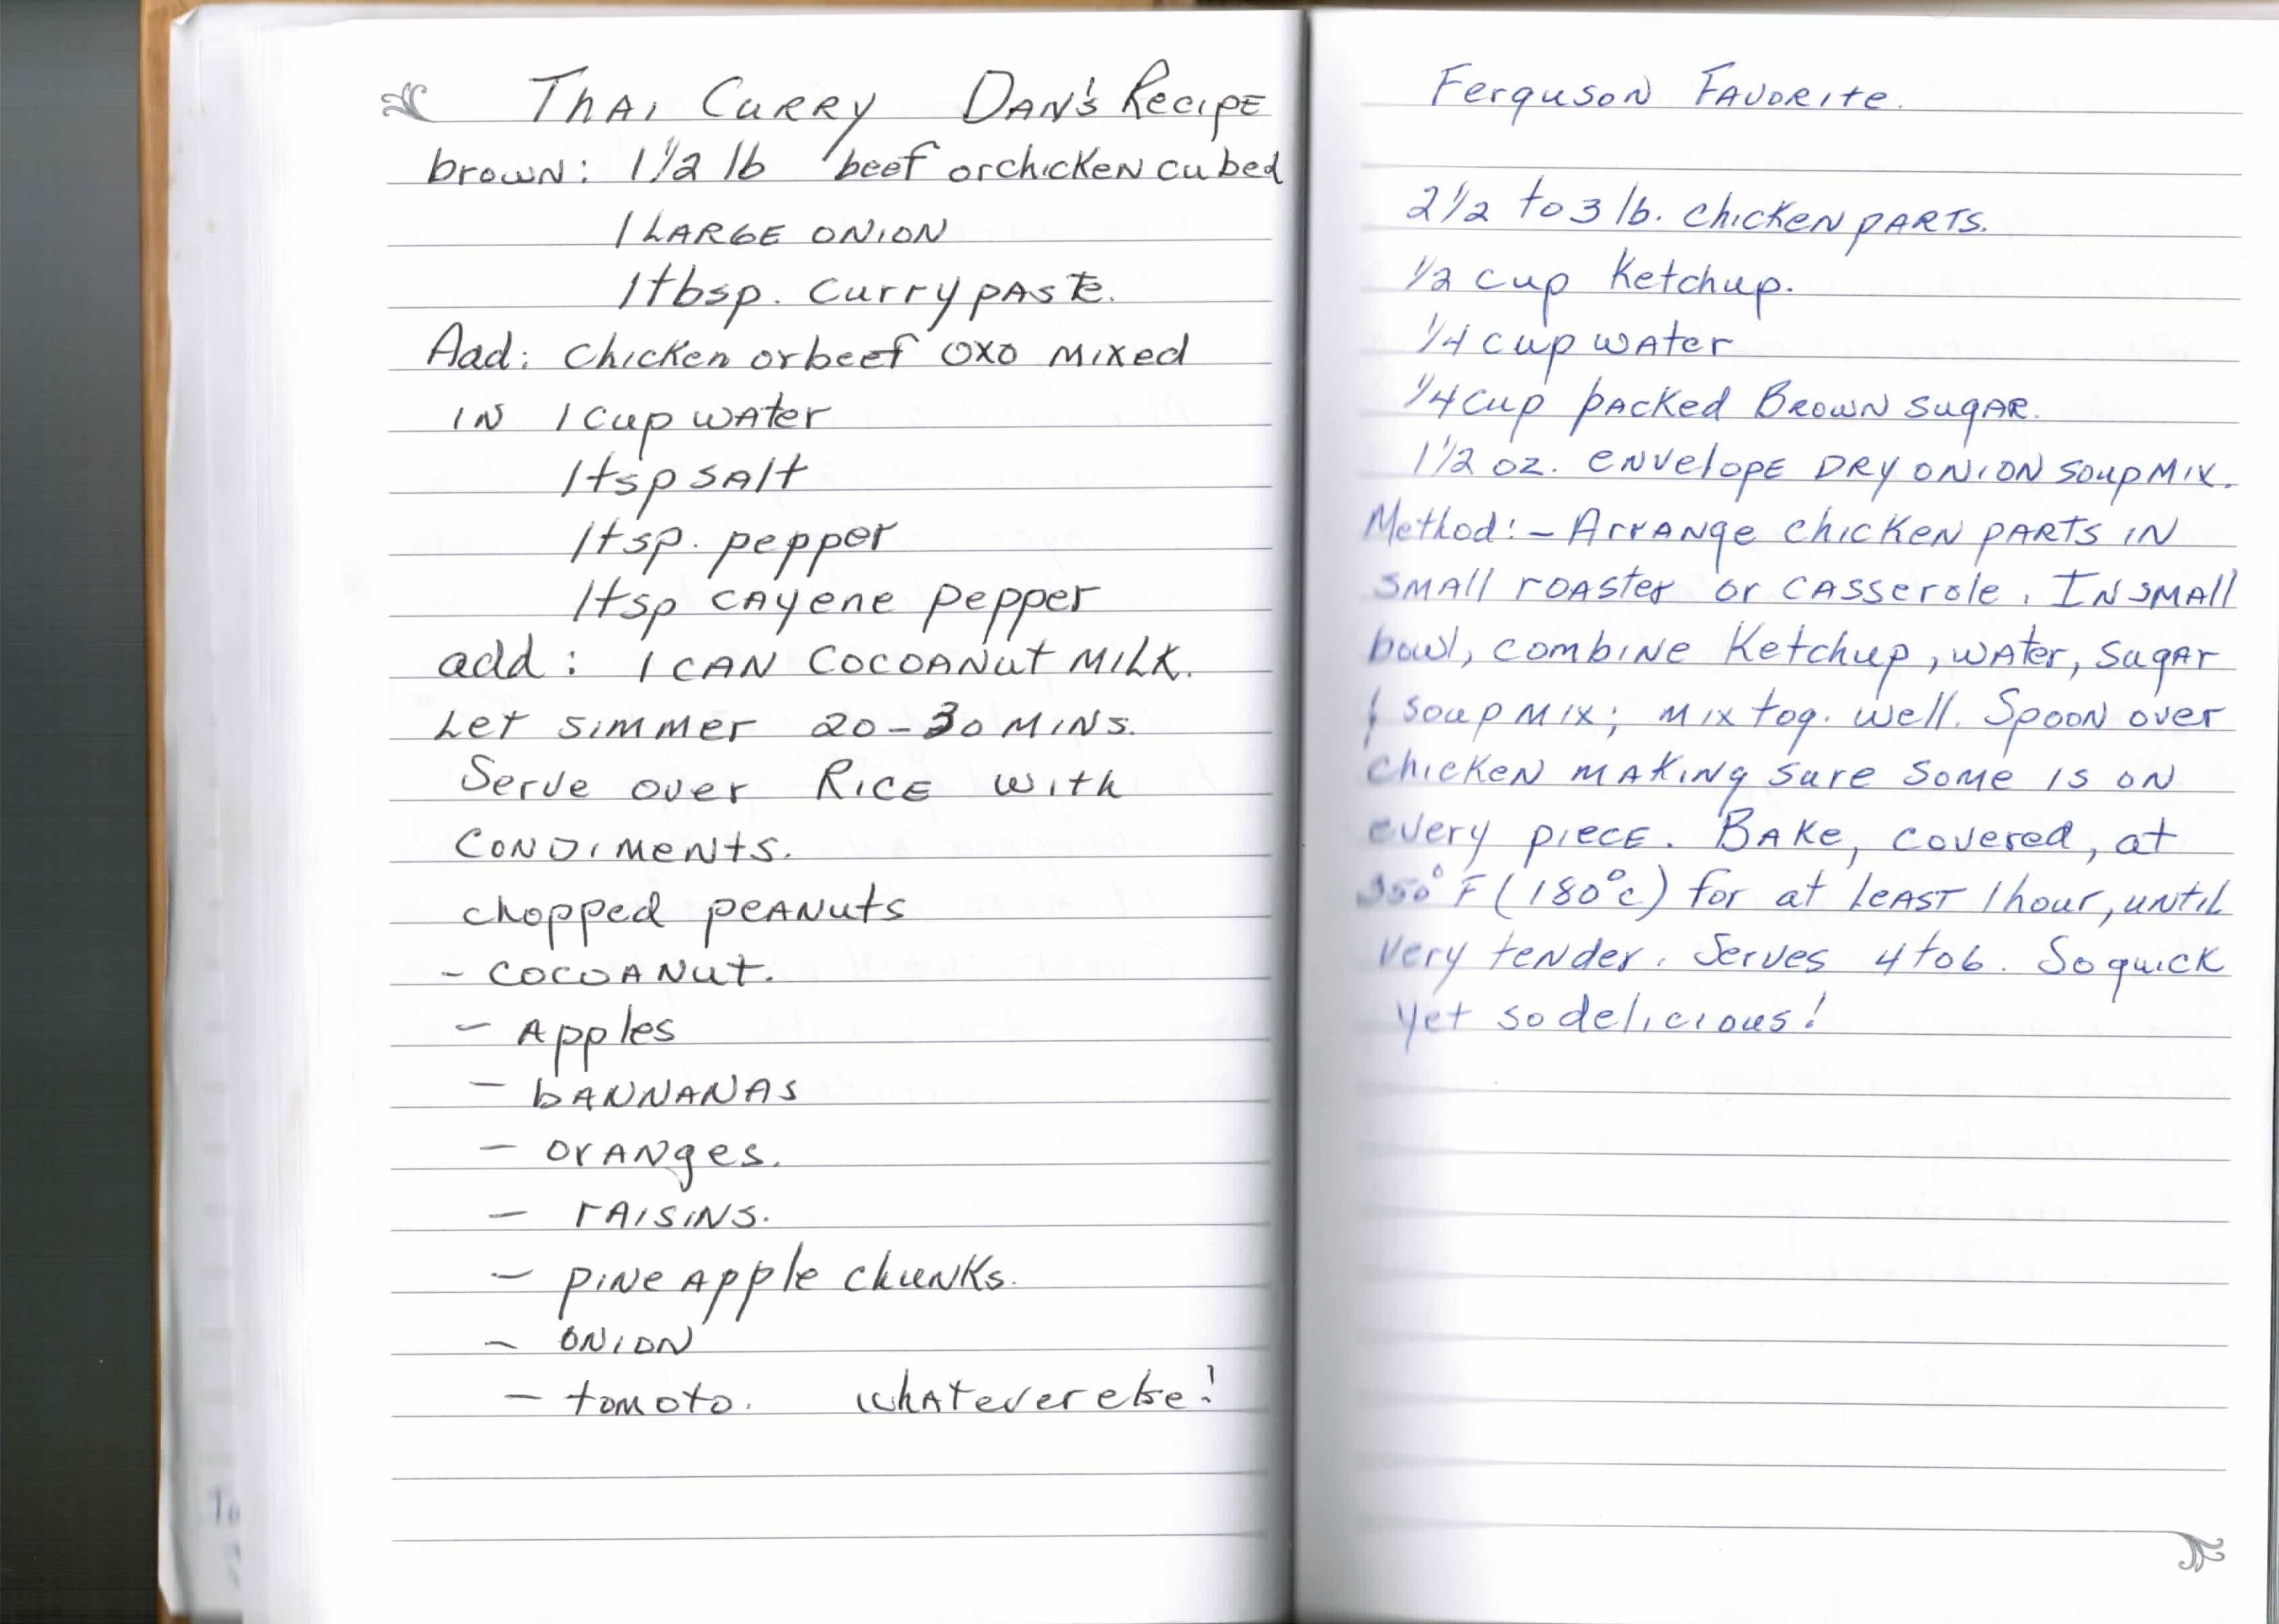 Thai Curry Dan's Recipe
brown: 1 1/2 lb beef or chicken cubed
1 Large onion
1 tbsp. curry paste.
Add: chicken or beef oxo mixed
in 1 cup water
1 tsp salt
1 tsp. pepper
1 tsp cayene pepper
add: 1 can cocoanut milk.
Let simmer 20-30 mins.
Serve over Rice with
Condiments.
chopped peanuts
- cocoanut.
- Apples
- bannanas
- oranges.
- raisins.
- pineapple chunks.
- onion
- tomoto. whatever else!
Ferguson Favorite.
2 1/2 to 3 lb. chicken parts.
1/2 cup ketchup.
1/4 cup water
1/4 cup packed Brown sugar.
1 1/2 oz. envelope dry onion soup mix.
Method:- Arrange chicken parts in
small roaster or casserole. In small
bowl, combine ketchup, water, sugar
& soup mix; mix tog. well. Spoon over
chicken making sure some is on
every piece. Bake, covered, at
350°F (180°c) for at least 1 hour, until
very tender. Serves 4 to 6. So quick
yet so delicious!